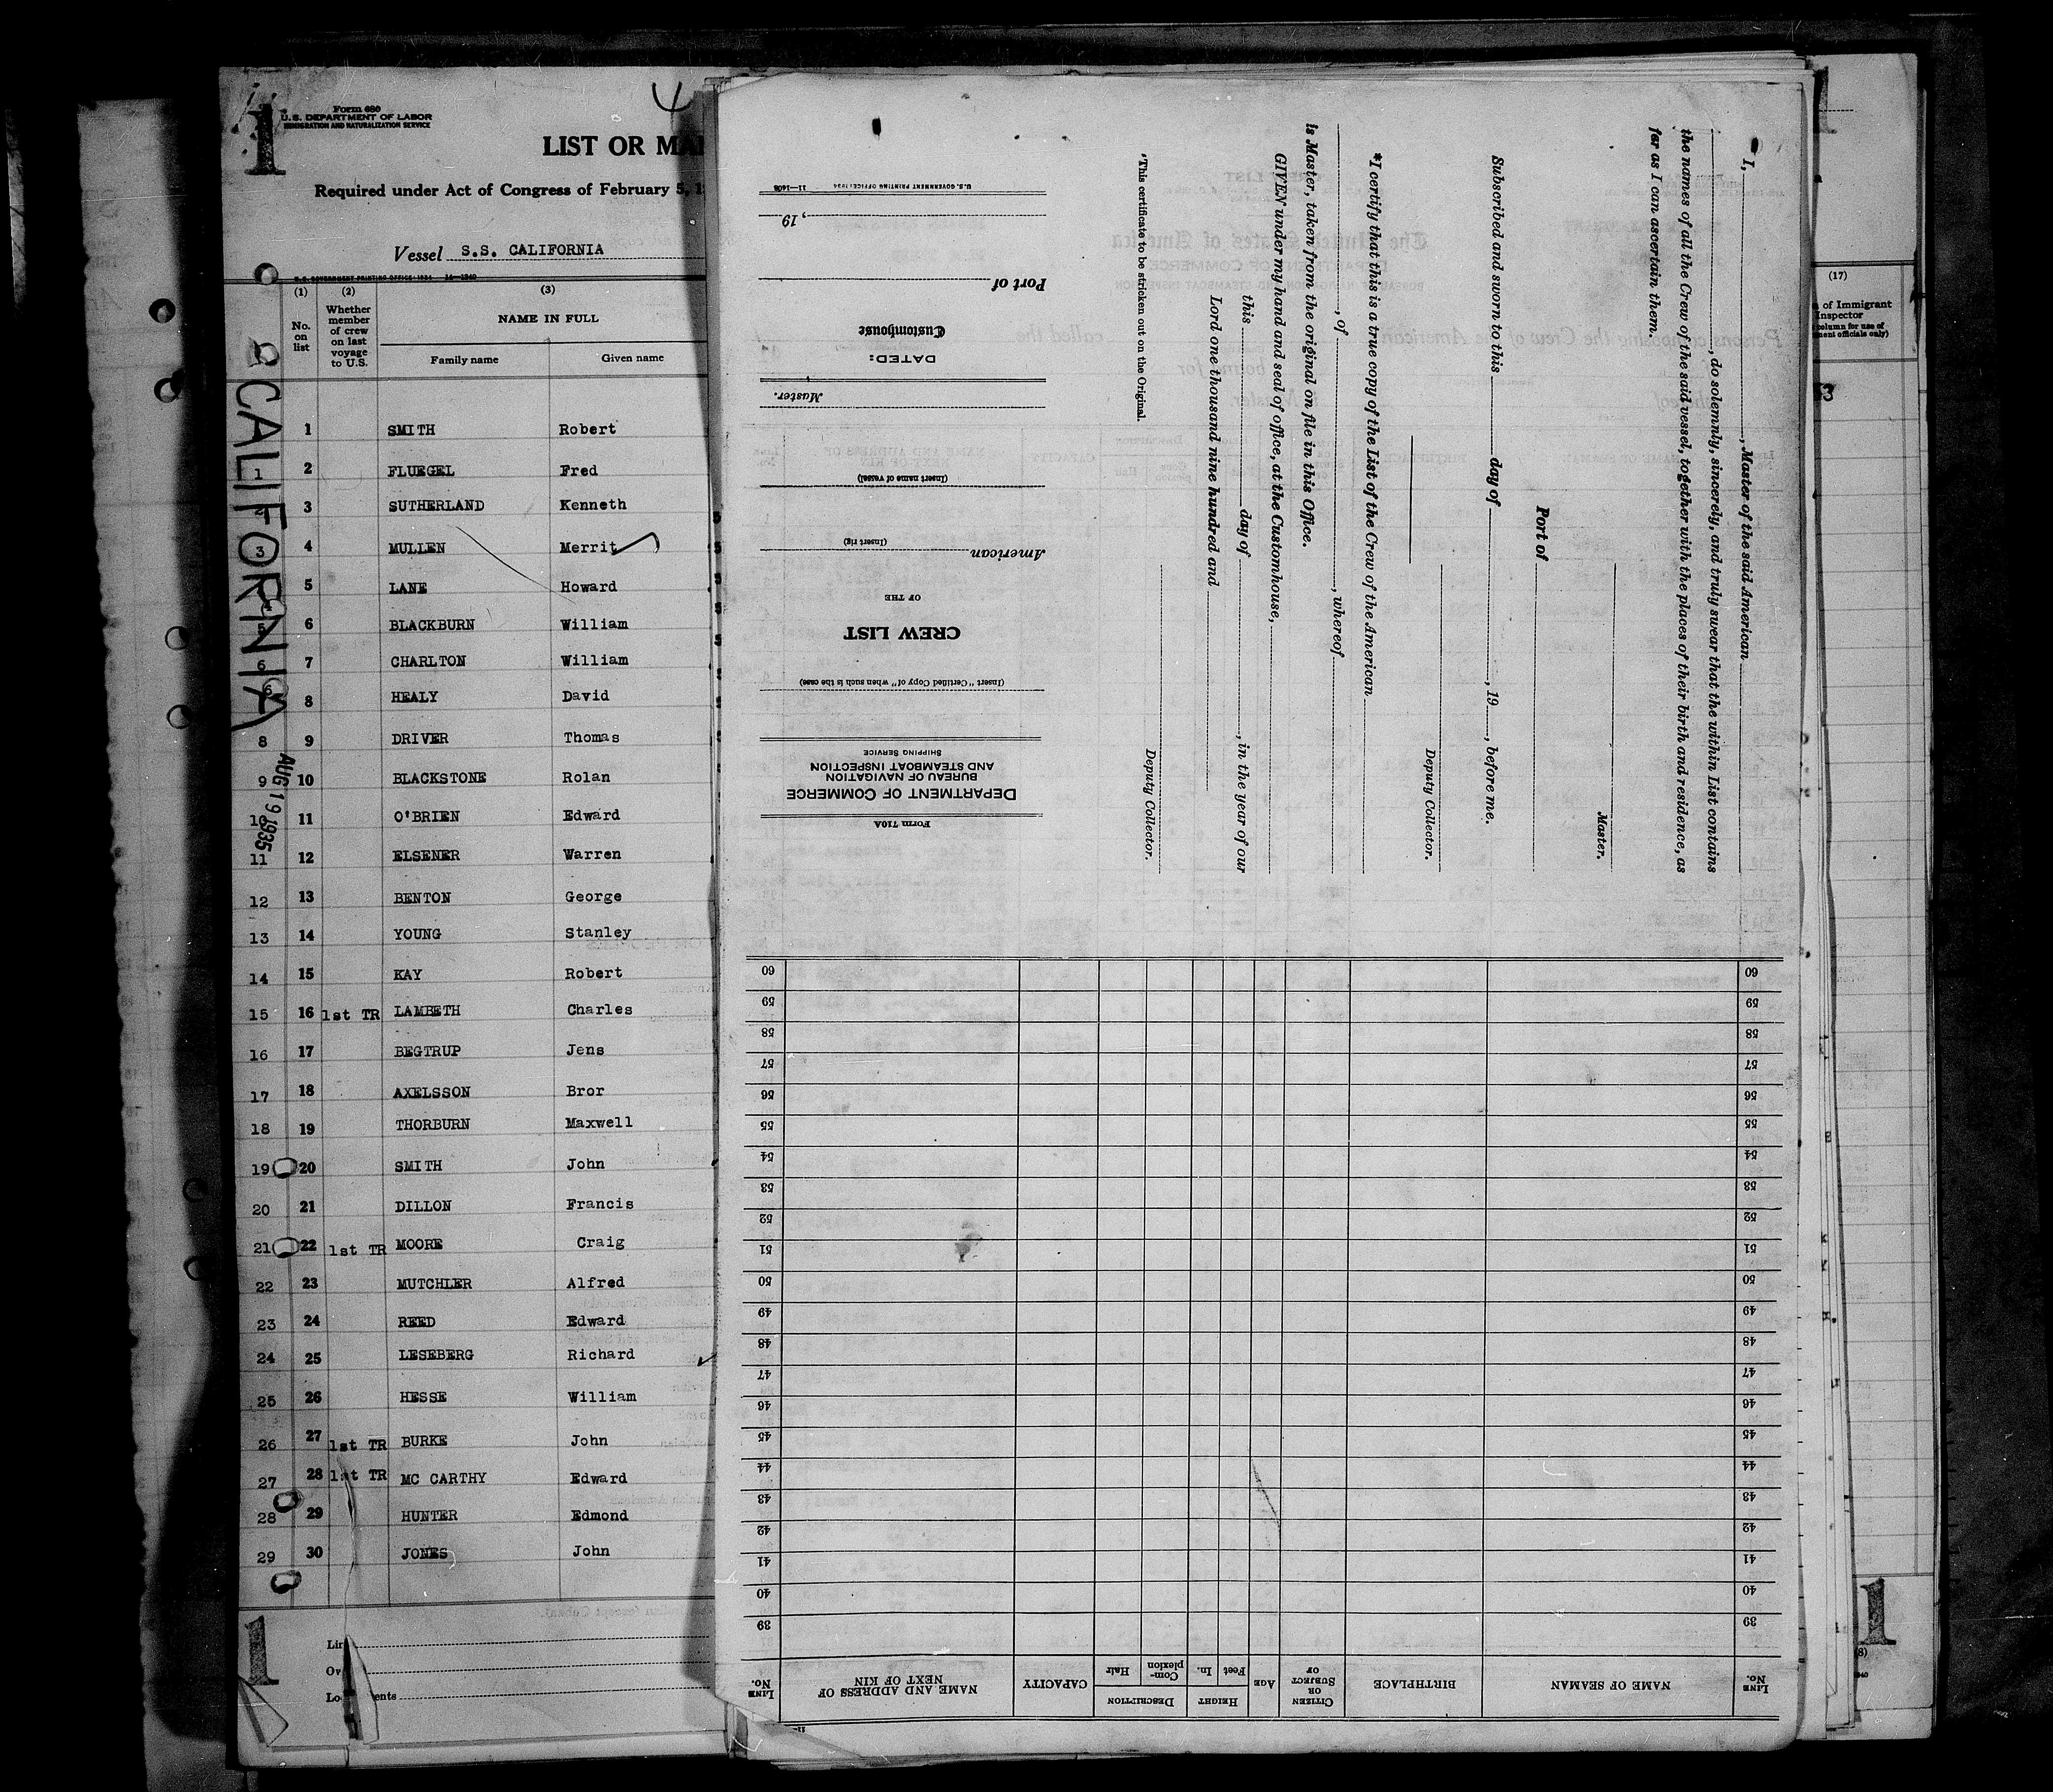 1
4
Form 680
U.S. DEPARTMENT OF LABOR
IMMIGRATION AND NATURALIZATION SERVICE
LIST OR MA
Required under Act of Congress of February 5, 1
Vessel S.S. CALIFORNIA
U.S. GOVERNMENT PRINTING OFFICE: 1934 14—1240
(1) (2) (3)
No. on list
Whether member of crew on last voyage to U.S.
NAME IN FULL
Family name Given name
CALIFORNIA
AUG 19 1935
1 SMITH Robert
1 2 FLUEGEL Fred
2 3 SUTHERLAND Kenneth
3 4 MULLEN Merrit
5 LANE Howard
5 6 BLACKBURN William
6 7 CHARLTON William
8 HEALY David
8 9 DRIVER Thomas
9 10 BLACKSTONE Rolan
10 11 O'BRIEN Edward
11 12 ELSENER Warren
12 13 BENTON George
13 14 YOUNG Stanley
14 15 KAY Robert
15 16 1st TR LAMBETH Charles
16 17 BEGTRUP Jens
17 18 AXELSSON Bror
18 19 THORBURN Maxwell
19 20 SMITH John
20 21 DILLON Francis
21 22 1st TR MOORE Craig
22 23 MUTCHLER Alfred
23 24 REED Edward
24 25 LESEBERG Richard
25 26 HESSE William
26 27 1st TR BURKE John
27 28 1st TR MC CARTHY Edward
28 29 HUNTER Edmond
29 30 JONES John
1
Form 710A
DEPARTMENT OF COMMERCE
BUREAU OF NAVIGATION
AND STEAMBOAT INSPECTION
SHIPPING SERVICE
(Insert "Certified Copy of" when such is the case)
CREW LIST
OF THE
American
(Insert rig)
(Insert name of vessel)
Master.
DATED:
Customhouse
Port of
, 19
U.S. GOVERNMENT PRINTING OFFICE: 1934 11—1408
I, , Master of the said American
, do solemnly, sincerely, and truly swear that the within List contains
the names of all the Crew of the said vessel, together with the places of their birth and residence, as
far as I can ascertain them.
Master.
Port of
Subscribed and sworn to this day of , 19 , before me.
Deputy Collector.
*I certify that this is a true copy of the List of the Crew of the American
, of , whereof
is Master, taken from the original on file in this Office.
GIVEN under my hand and seal of office, at the Customhouse,
this day of , in the year of our
Lord one thousand nine hundred and
Deputy Collector.
*This certificate to be stricken out on the Original.
LINE No.
NAME OF SEAMAN
BIRTHPLACE
CITIZEN OR SUBJECT OF
AGE
HEIGHT
Feet In.
DESCRIPTION
Complexion Hair
CAPACITY
NAME AND ADDRESS OF NEXT OF KIN
LINE No.
39 39
40 40
41 41
42 42
43 43
44 44
45 45
46 46
47 47
48 48
49 49
50 50
51 51
52 52
53 53
54 54
55 55
56 56
57 57
58 58
59 59
60 60
(17)
of Immigrant
Inspector
column for use of
ment officials only)
1